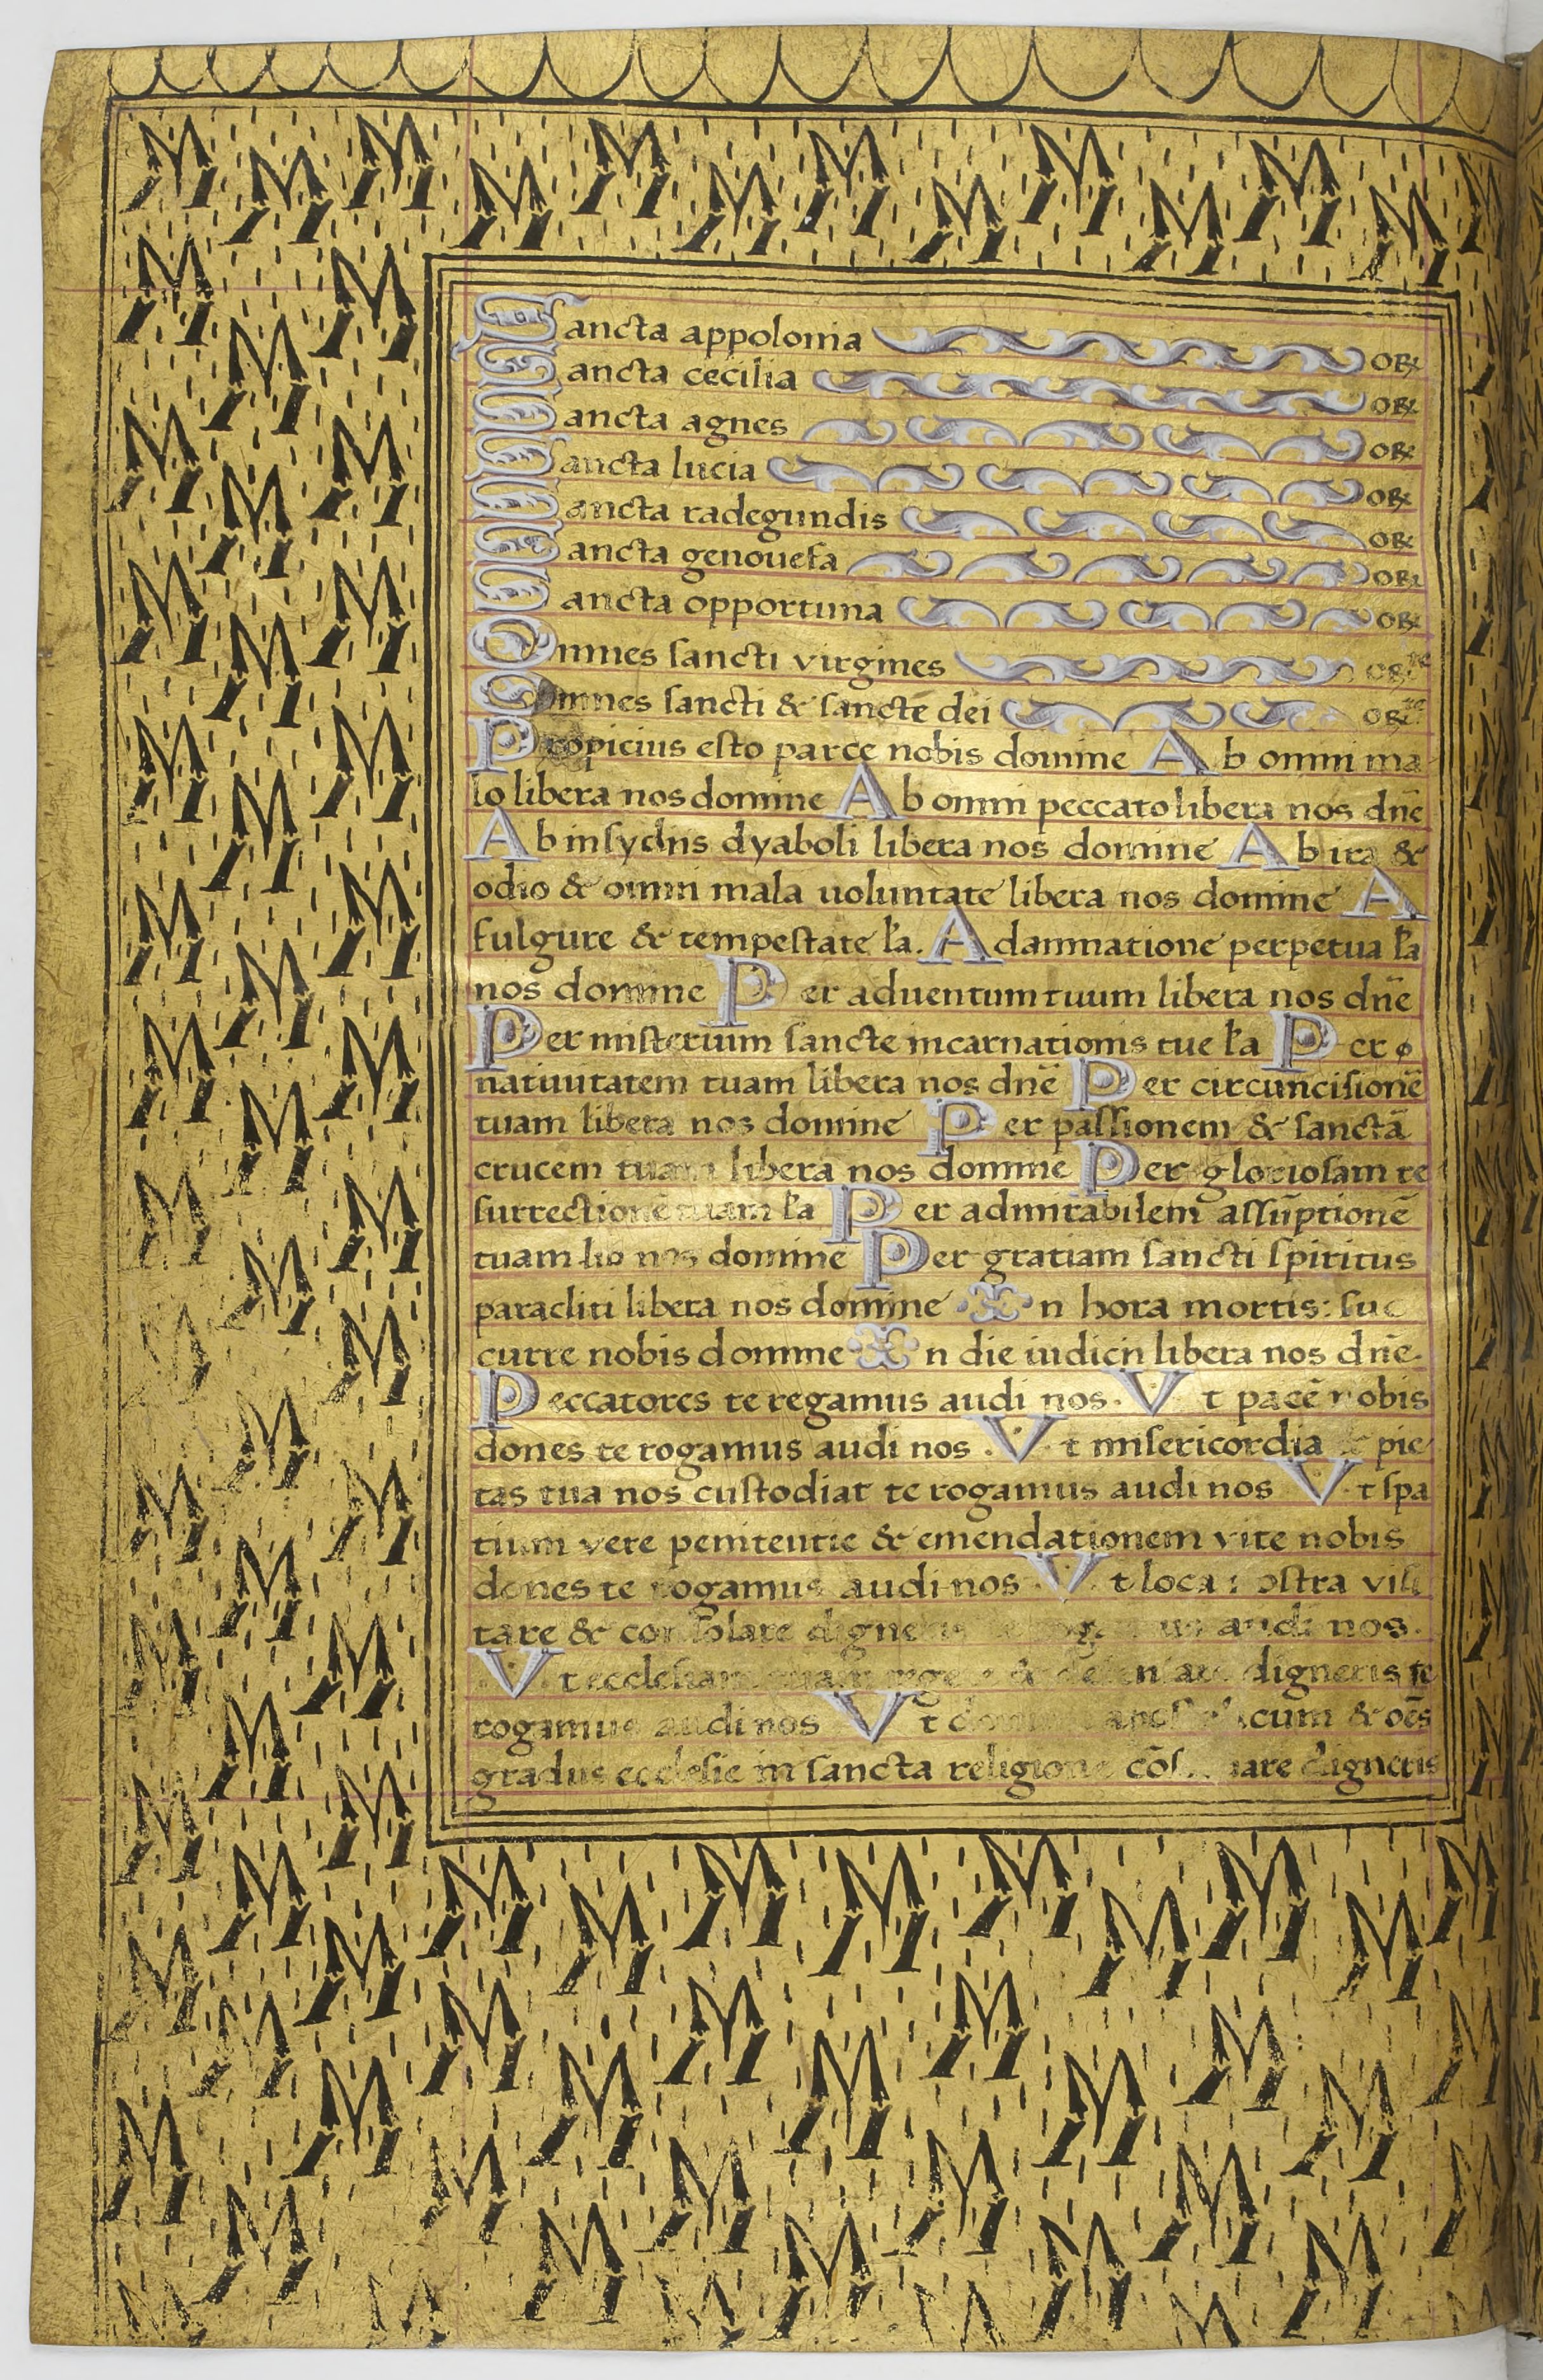 Sancta appolonia OR
Sancta cecilia OR
Sancta agnes OR
Sancta lucia OR
Sancta radegundis OR
Sancta genouefa OR
Sancta opportuna OR
Omnes sancti virgines OR
Omnes sancti & sancte dei OR
Propicius esto parce nobis domine Ab omni ma
lo libera nos domine Ab omni peccato libera nos dn̄e
Ab insydiis dyaboli libera nos domine Ab ira &
odio & omni mala uoluntate libera nos domine A
fulgure & tempestate l'a. A damnatione perpetua l'a
nos domine Per aduentum tuum libera nos dn̄e
Per misterium sancte incarnationis tue l'a Per
natiuitatem tuam libera nos dn̄e Per circuncisionē
tuam libera nos domine Per passionem & sanctā
crucem tuam libera nos domine Per gloriosam re
surrectionē tuam l'a Per admirabilem assūptionē
tuam lib nos domine Per gratiam sancti spiritus
paracliti libera nos domine In hora mortis: suc
curre nobis domine In die iudicii libera nos dn̄e.
Peccatores te regamus audi nos. Vt pacē nobis
dones te rogamus audi nos. Vt misericordia & pie
tas tua nos custodiat te rogamus audi nos Vt spa
tium vere penitentie & emendationem vite nobis
dones te rogamus audi nos. Vt loca nostra visi
tare & consolare audi nos.
Vt ecclesiam tuam & digneris te
rogamus audi nos Vt cum & oēs
gradus ecclesie in sancta religione digneris